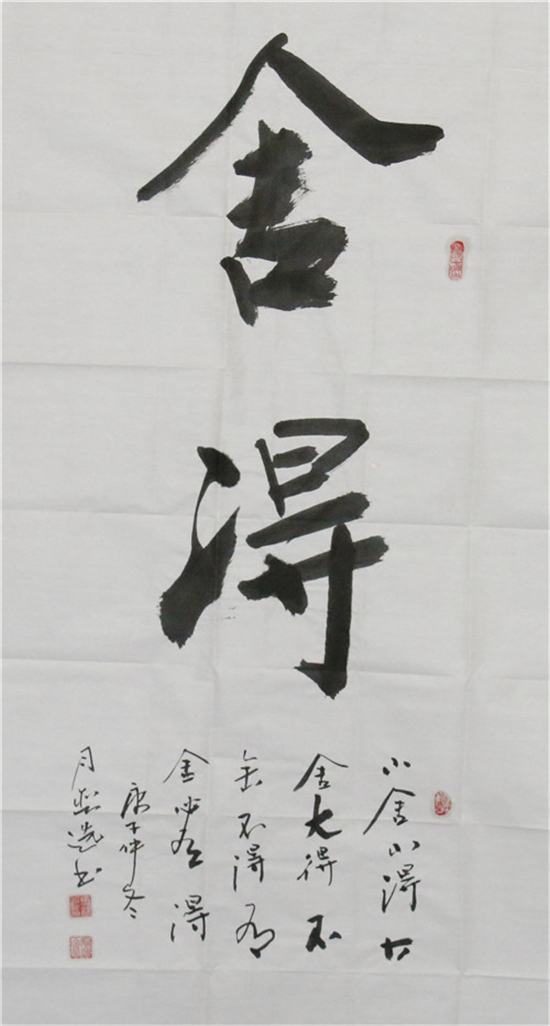 舍
得
小舍小得大
舍大得不
舍不得有
舍必有得
庚子仲冬
月 选书